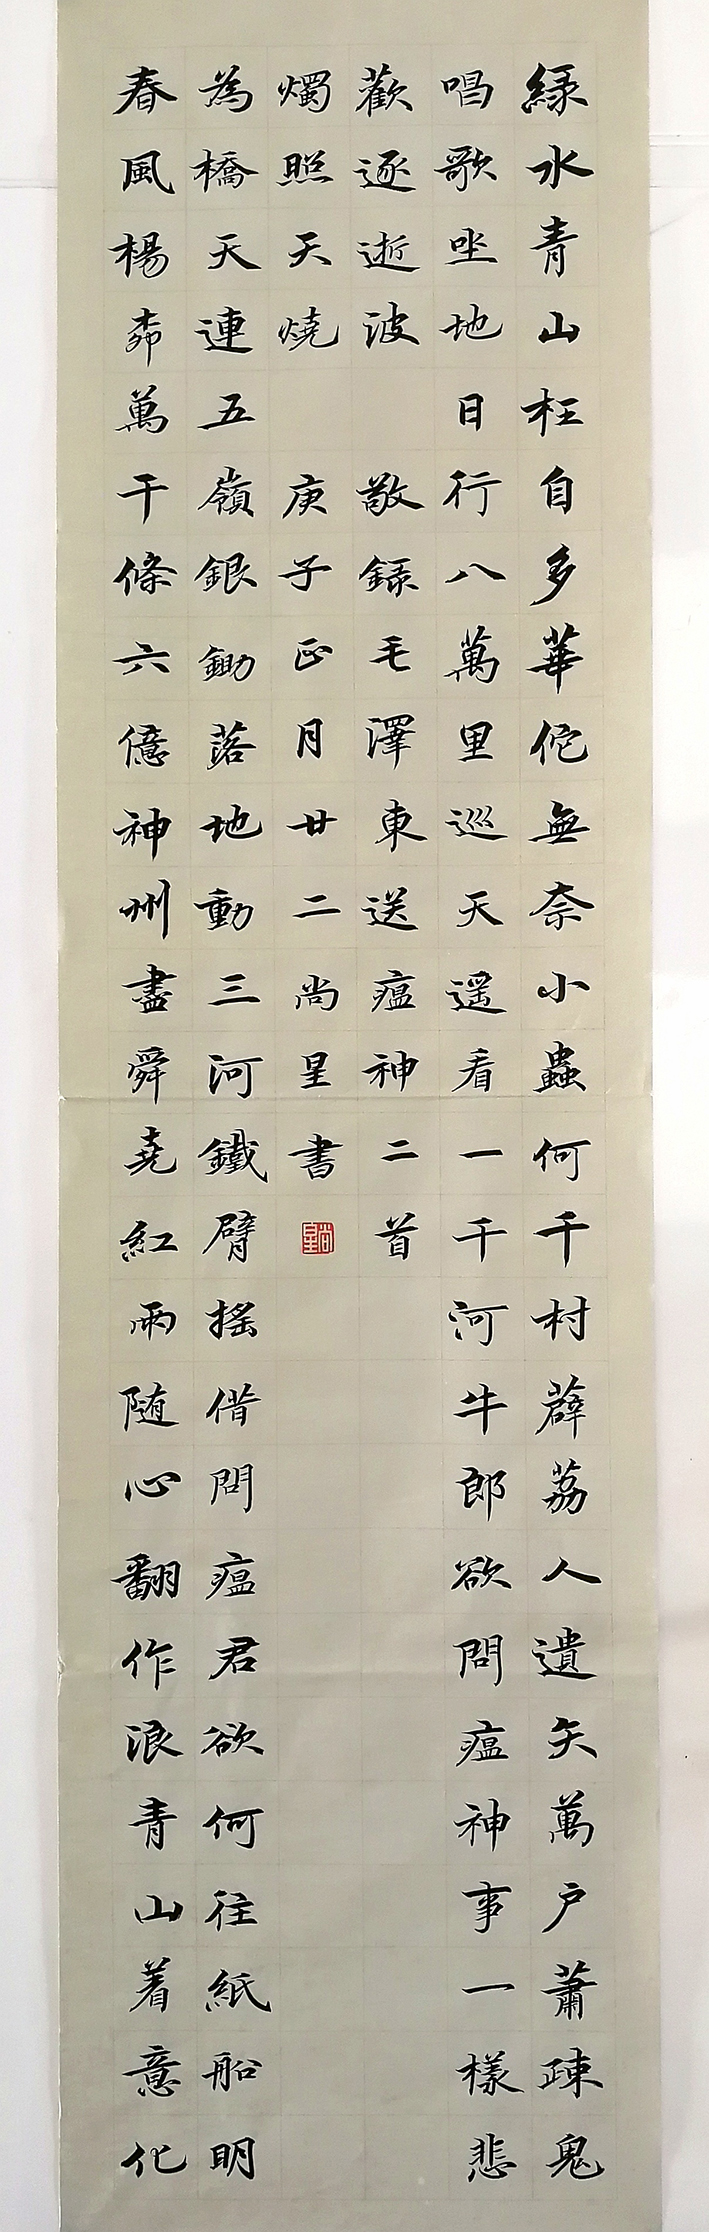 綠水青山枉自多華佗無奈小蟲何千村薜荔人遺矢萬户蕭疎鬼
唱歌坐地日行八萬里巡天遥看一千河牛郎欲問瘟神事一樣悲
歡逐逝波 敬錄毛澤東送瘟神二首
春風楊桺萬千條六億神州盡舜堯紅雨随心翻作浪青山着意化
為橋天連五嶺銀鋤落地動三河鐵臂搖借問瘟君欲何往紙船明
燭照天燒 庚子正月廿二尚星書
尚星